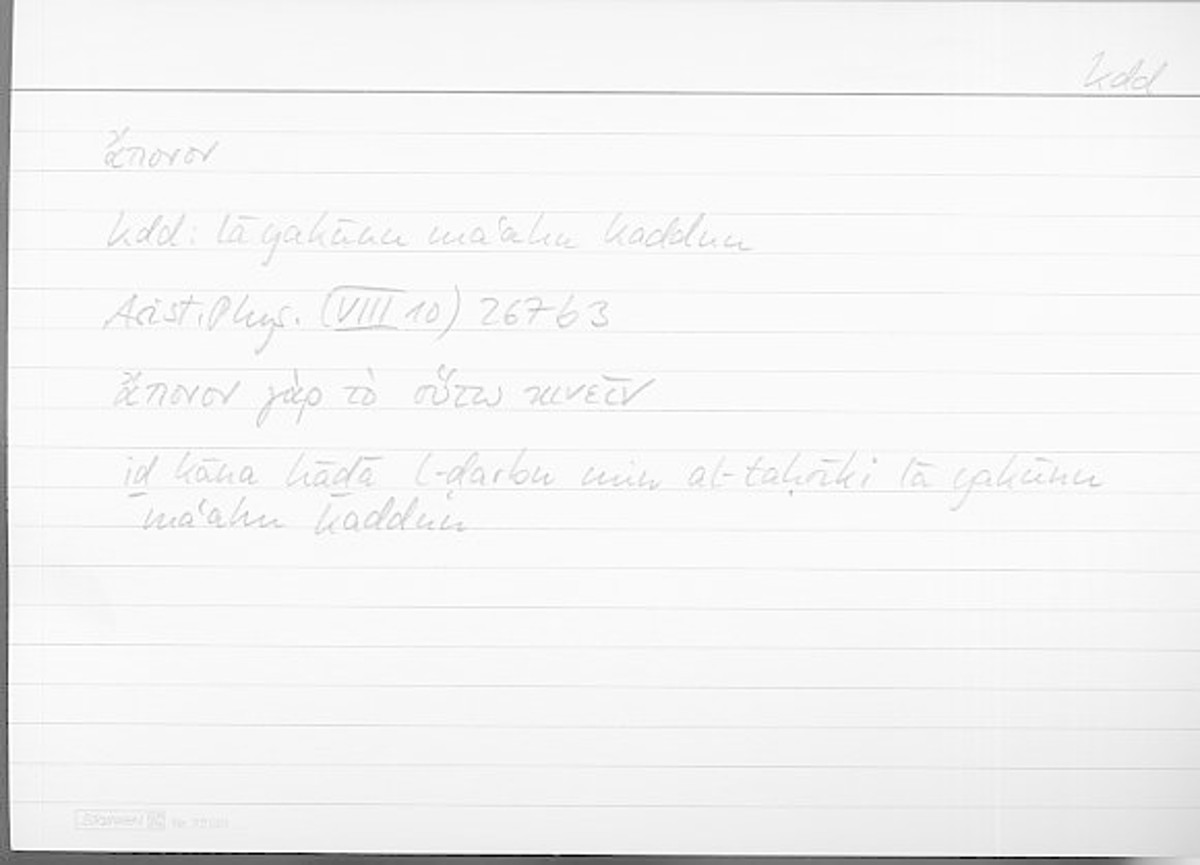 kdd
ἄπονον
kdd: lā yakūnu maʿahu kaddun
Arist. Phys. (VIII 10) 267b3
ἄπονον γὰρ τὸ οὕτω κινεῖν
iḏ kāna hāḏā l-ḍarbu min at-taḥrīki lā yakūnu
maʿahu kaddun